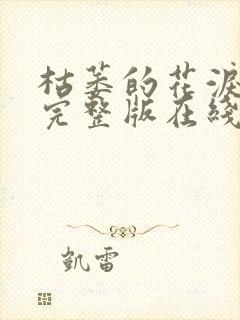 枯萎的花淚
完整版在綫
凱雷